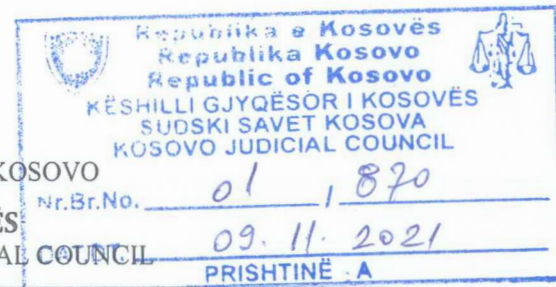 Republika e Kosovës
Republika Kosovo
Republic of Kosovo
KËSHILLI GJYQËSOR I KOSOVËS
SUDSKI SAVET KOSOVA
KOSOVO JUDICIAL COUNCIL
KOSOVO
Nr.Br.No. 01 / 870
ËS
AL COUNCIL 09. 11. 2021
PRISHTINË A